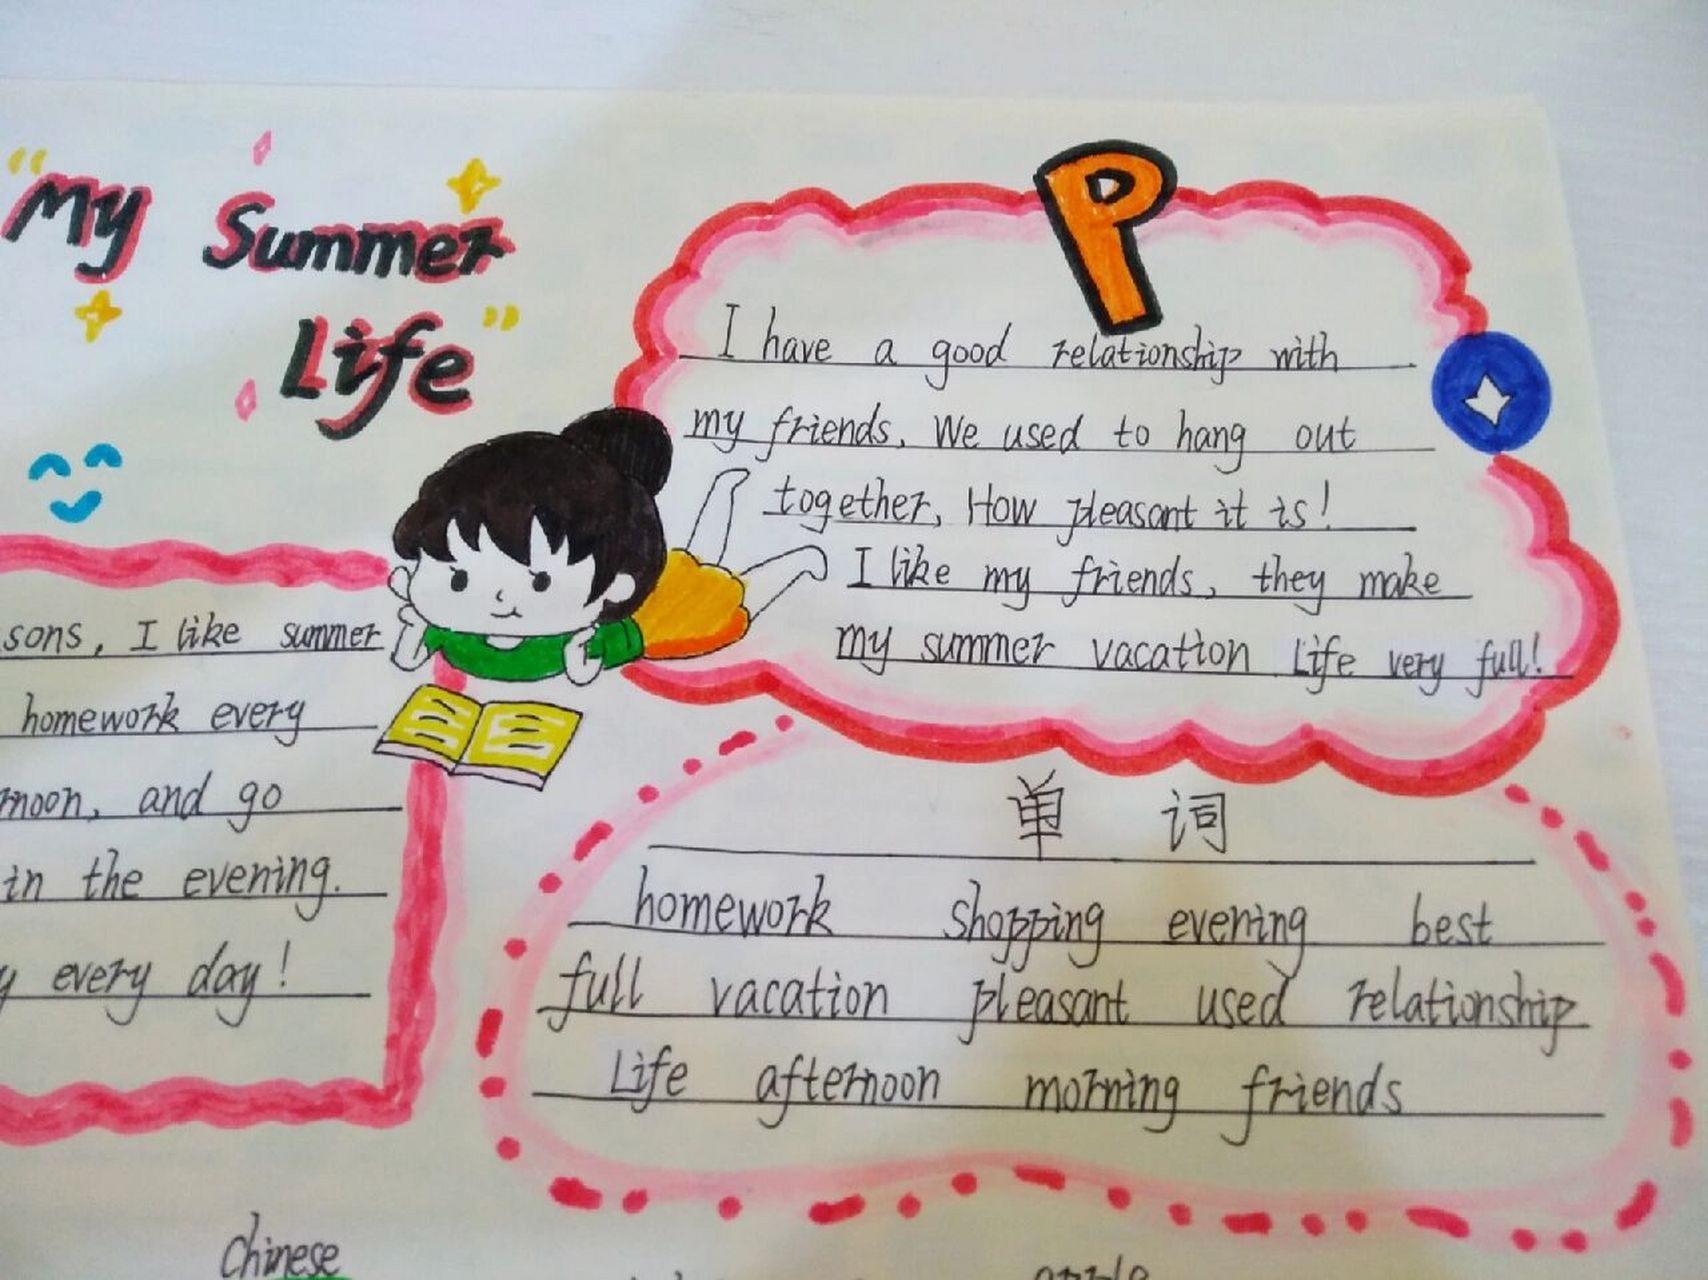 "My Summer
Life"
sons, I like summer
homework every
rnoon, and go
in the evening.
y every day!
P
I have a good relationship with
my friends. We used to hang out
together, How pleasant it is!
I like my friends, they make
my summer vacation Life very full!
单词
homework shopping evening best
full vacation pleasant used relationship
Life afternoon morning friends
Chinese